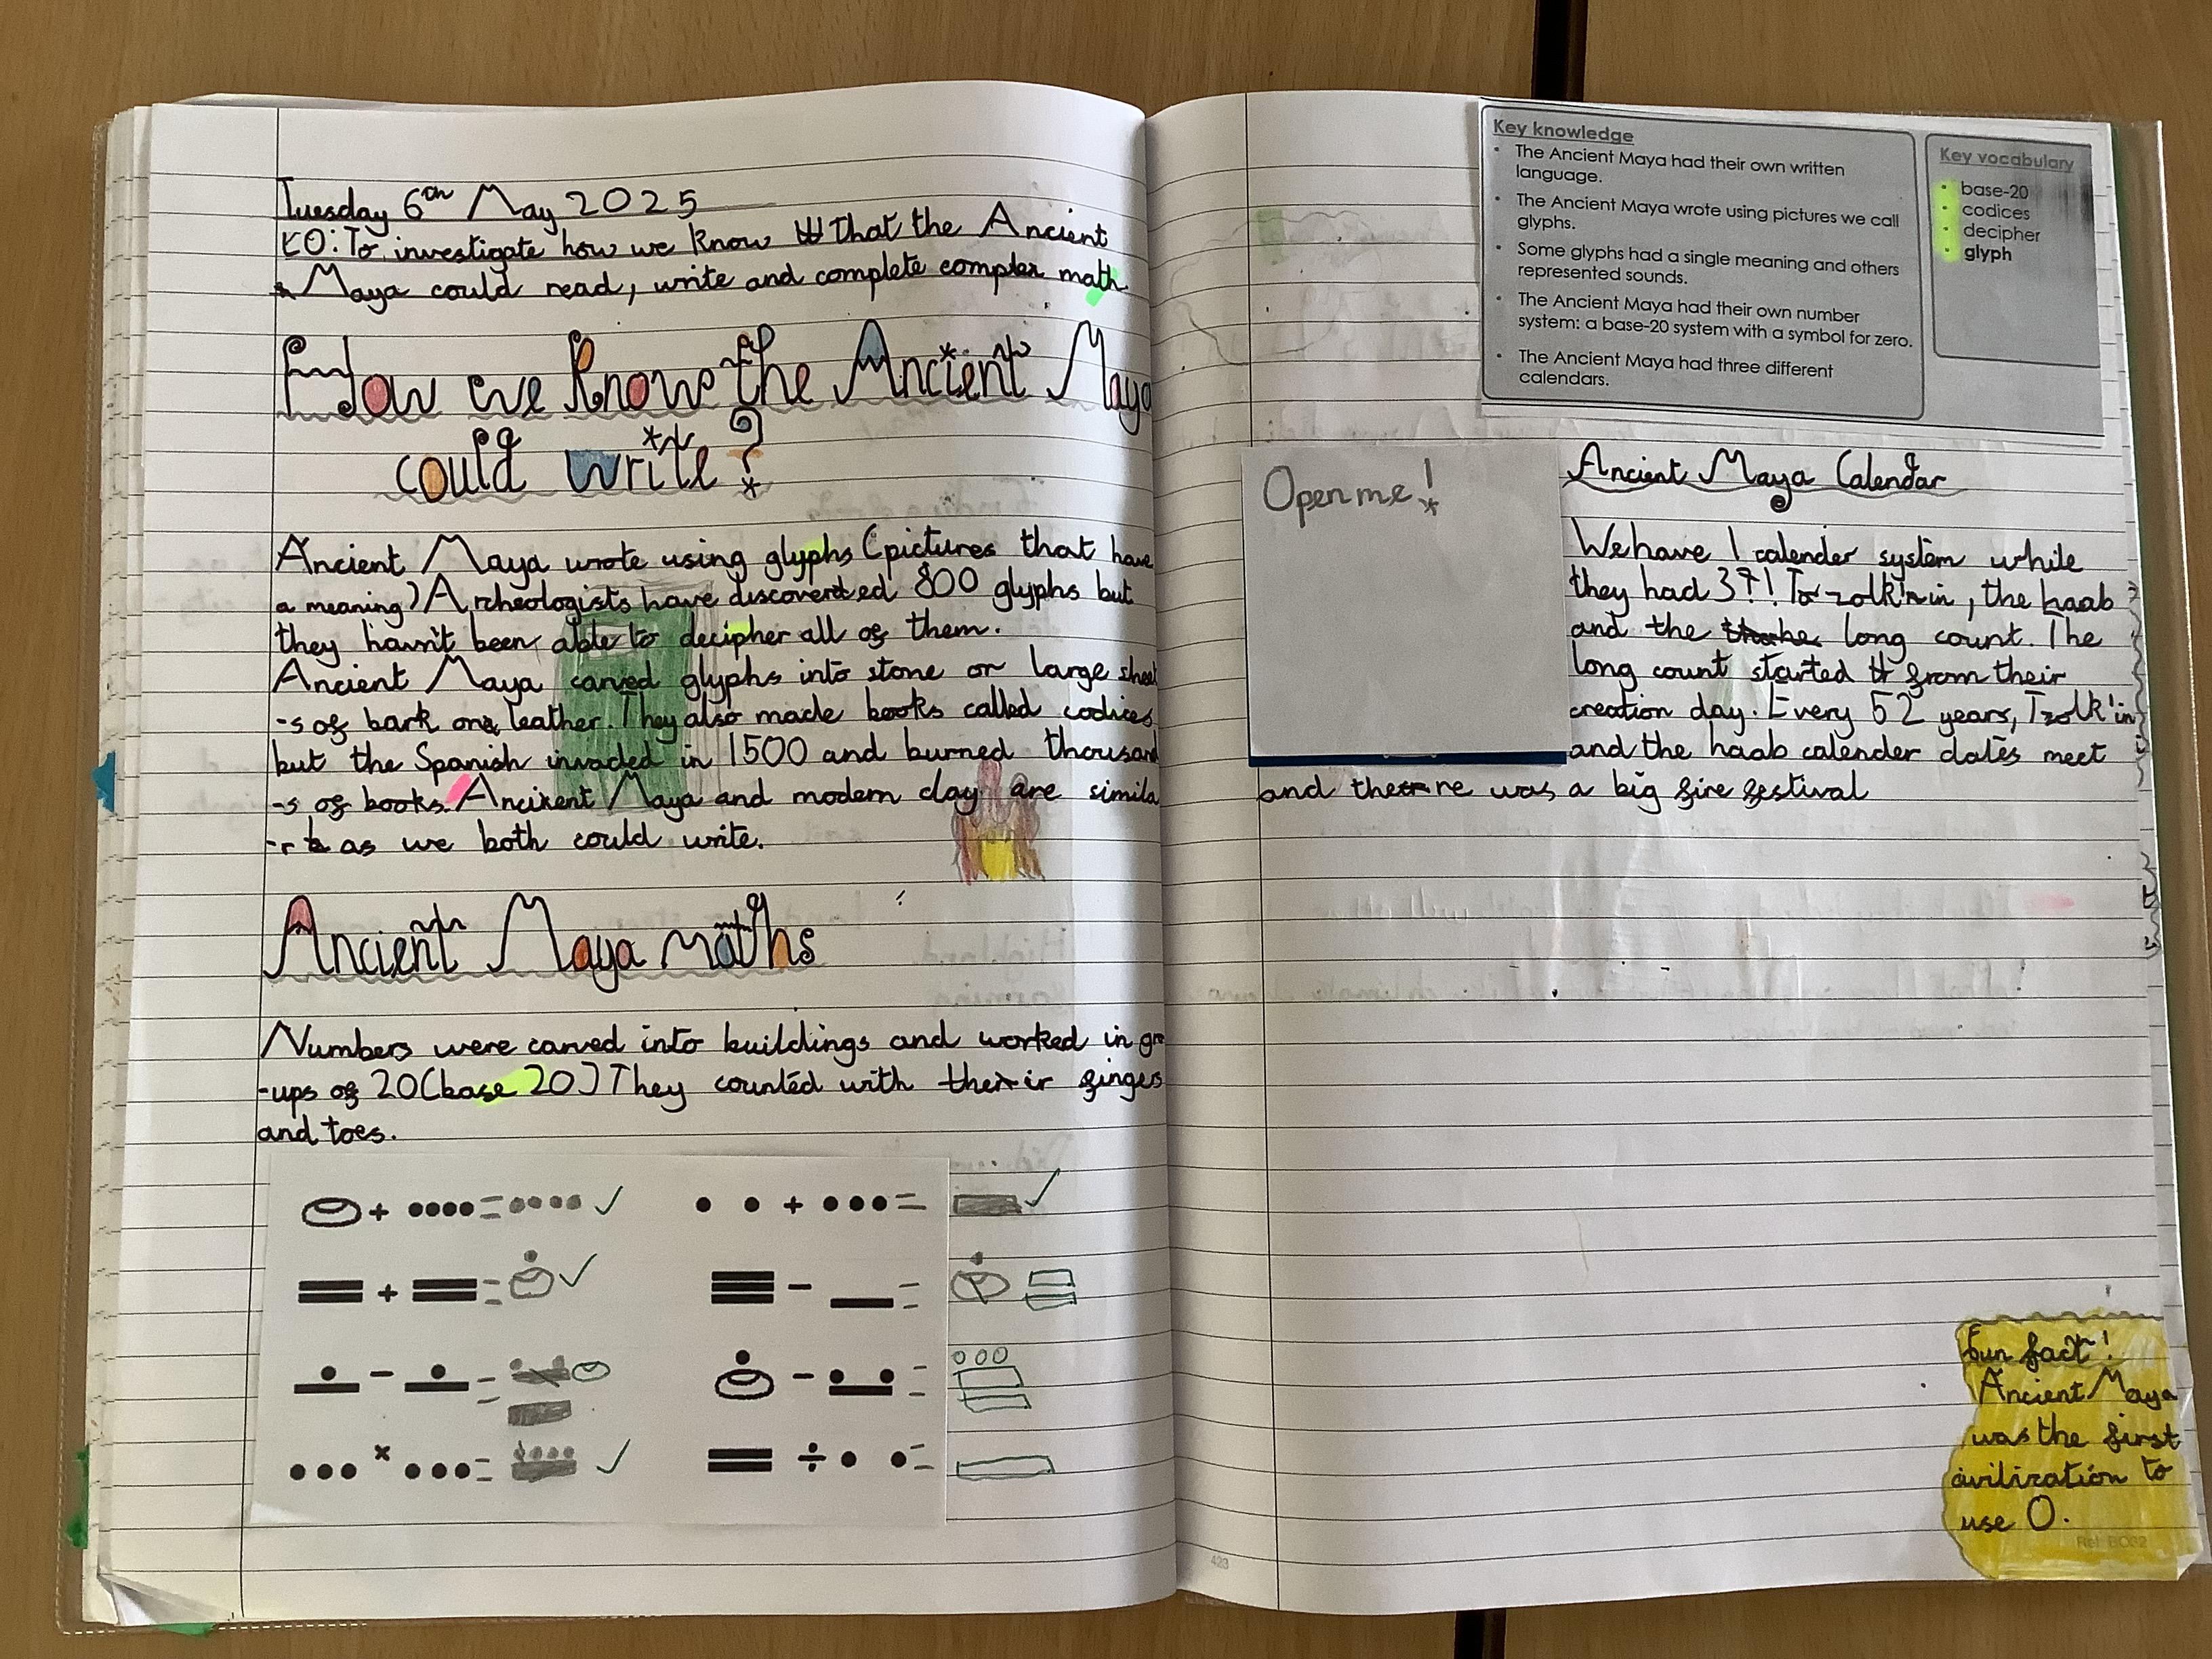 Tuesday 6th May 2025
LO: To investigate how we know that the Ancient
Maya could read, write and complete complex math
How we know the Ancient Maya
could write?
Ancient Maya wrote using glyphs (pictures that have
a meaning) Archeologists have discovered 800 glyphs but
they havn't been able to decipher all of them.
Ancient Maya carved glyphs into stone or large sheet
-s of bark or leather. They also made books called codices
but the Spanish invaded in 1500 and burned thousand
-s of books. Ancient Maya and modern day are simila
-r as we both could write.
Ancient Maya maths
Numbers were carved into buildings and worked in gro
-ups of 20 (base 20) They counted with their fingers
and toes.
Key knowledge
• The Ancient Maya had their own written
language.
• The Ancient Maya wrote using pictures we call
glyphs.
• Some glyphs had a single meaning and others
represented sounds.
• The Ancient Maya had their own number
system: a base-20 system with a symbol for zero.
• The Ancient Maya had three different
calendars.
Key vocabulary
• base-20
• codices
• decipher
• glyph
Open me!
Ancient Maya Calendar
We have 1 calender system while
they had 3?! Tzolk'in, the haab
and the long count. The
long count started from their
creation day. Every 52 years, Tzolk'in
and the haab calender dates meet
and there was a big fire festival
Fun fact!
Ancient Maya
was the first
civilization to
use 0.
423